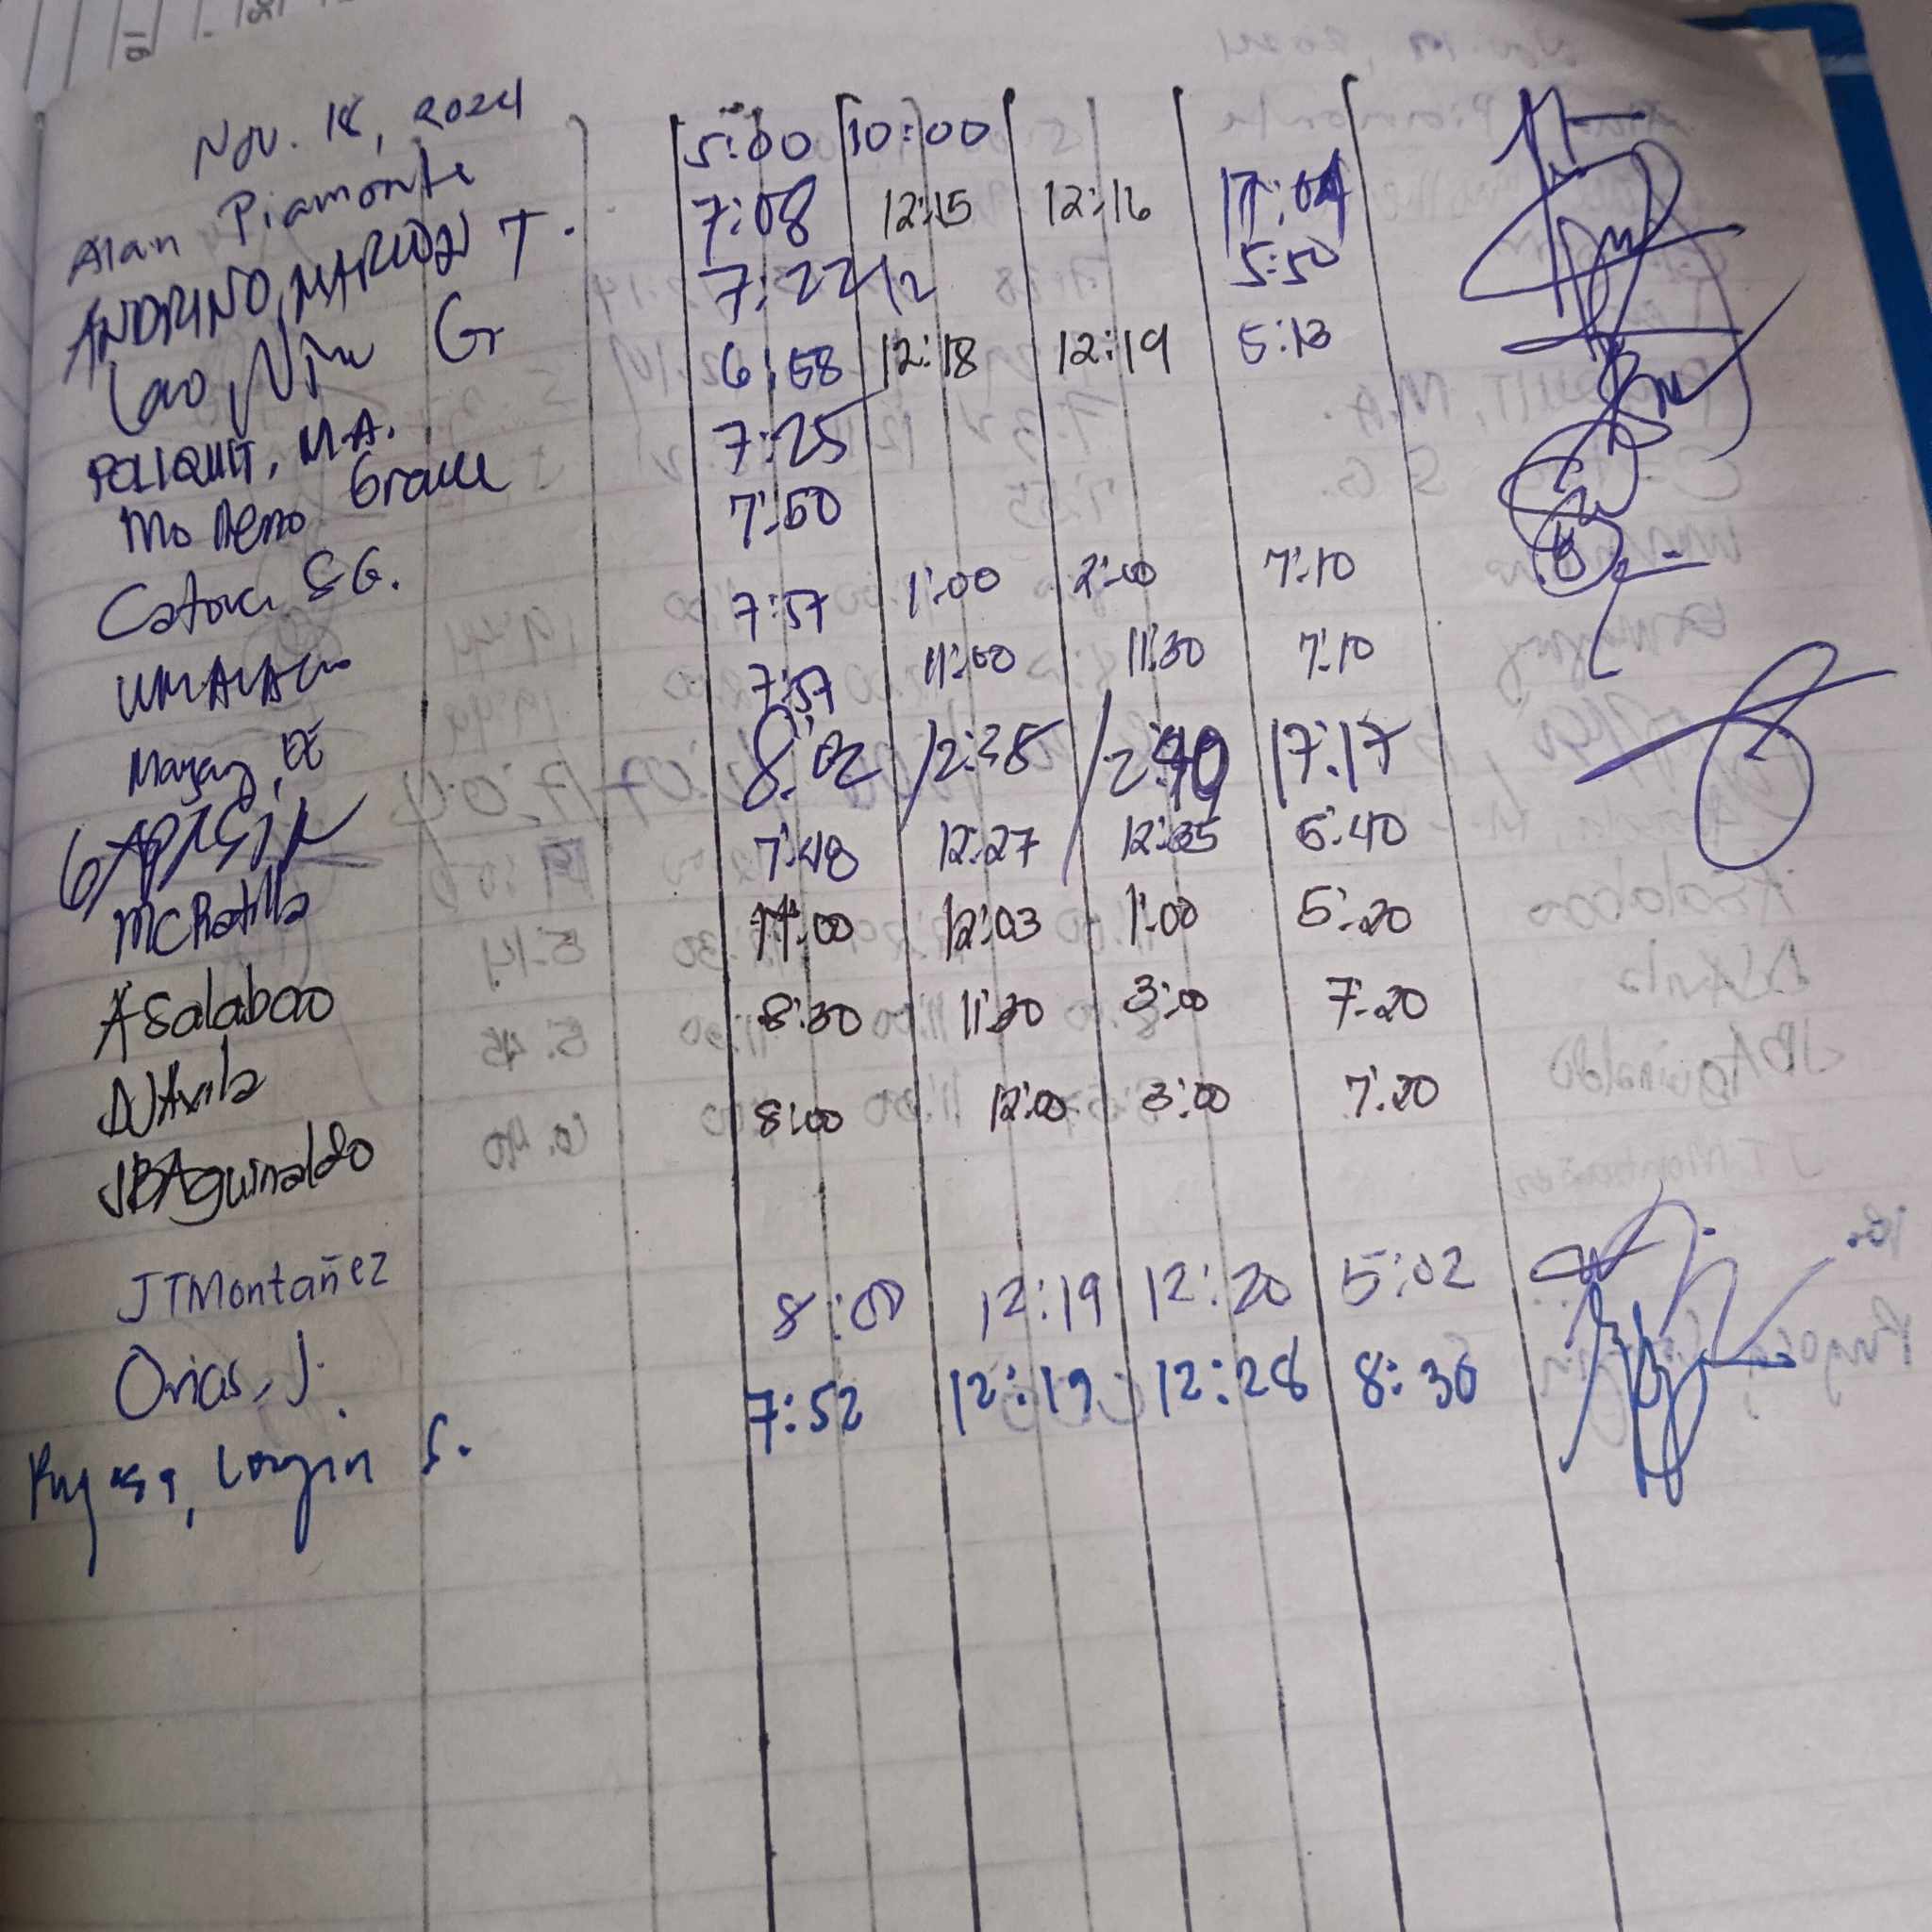 Nov. 18, 2024
Alan Piamonte 5:00 10:00
ANDRINO, MARION T. 7:08 12:15 12:16 17:04
Lao, G 7:22 12 5:50
POLIQUIT, M.A. 6:58 12:18 12:19 5:13
Moreno Grace 7:25
Catova SG. 7:50
UMALAO 7:57 1:00 2:00 7:10
Magay, 7:57 11:00 11:30 7:10
8:02 12:38 12:40 17:17
MCPadilla 7:48 12:27 12:35 5:40
ASalabao 11:00 12:03 1:00 5:20
DJAvila 8:30 11:30 3:00 7:20
JBAguinaldo 8:00 12:00 3:00 7:20
JTMontañez
Orias, J. 8:00 12:19 12:20 5:02
S. 7:52 12:19 12:28 8:36